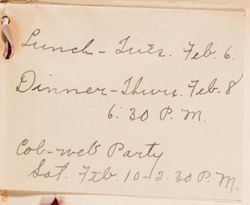 Lunch - Tues. Feb. 6.
Dinner - Thurs. Feb. 8
6:30 P.M.
Cob-web Party
Sat. Feb. 10 - 2:30 P.M.